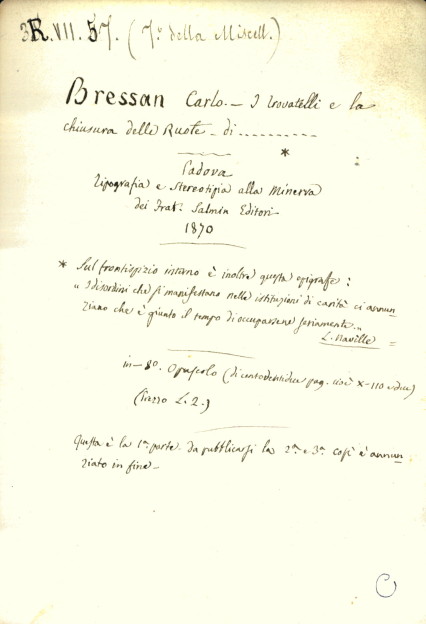 3R.VII.57. (7º della Miscell.)
Bressan Carlo. - I trovatelli e la
chiusura delle Ruote - di ..........
*
Padova
Tipografia e Stereotipia alla Minerva
dei Frat. Salmin Editori
1870
* Sul frontispizio interno è inoltre questa epigraffe :
" I disordini che si manifestano nelle istituzioni di carità ci annun
ziano che è giunto il tempo di occuparsene seriamente. "
L. Naville =
in-8º. Opuscolo (di centododici pag. cioè X-110 e due)
(Prezzo L. 2.)
Questa è la 1ª parte da pubblicarsi la 2ª e 3ª così è annun
ziato in fine -
C